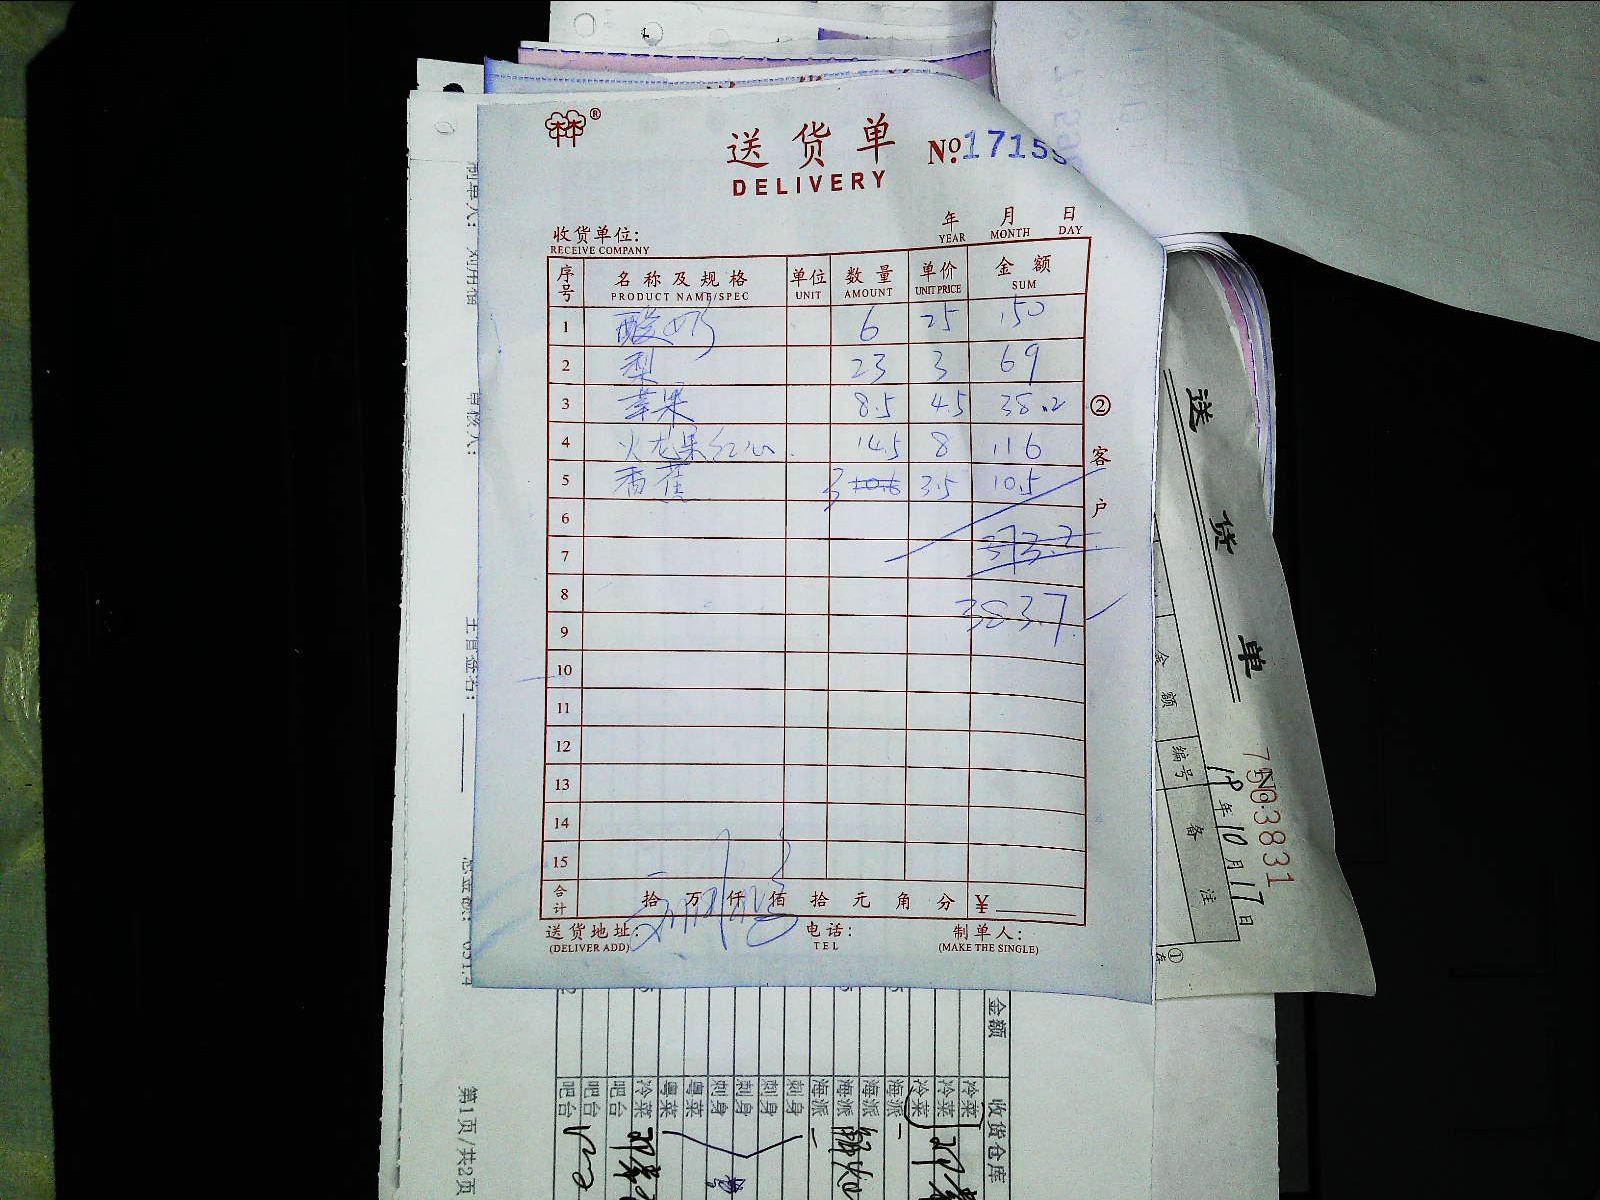 ®
送货单 №17155
DELIVERY
收货单位:
RECEIVE COMPANY
年 月 日
YEAR MONTH DAY
序号 名称及规格 单位 数量 单价 金额
PRODUCT NAME/SPEC UNIT AMOUNT UNIT PRICE SUM
1 酸奶 6 25 150
2 梨 23 3 69
3 苹果 8.5 4.5 38.2
4 火龙果红心 14.5 8 116
5 香蕉 3 10.6 3.5 10.5
6
7 373.7
8 383.7
9
10
11
12
13
14
15
合计 拾 万 仟 佰 拾 元 角 分 ¥
送货地址: 电话: 制单人:
(DELIVER ADD) TEL (MAKE THE SINGLE)
② 客户
送货单
19年10月17日
金额
编号
备注
①
制单人:
审核人:
主管签名:
第1页/共2页
金额 收货仓库
冷菜
冷菜
冷菜
海派
海派
海派
海派
刺身
刺身
刺身
刺身
粤菜
粤菜
冷菜
吧台
吧台
吧台